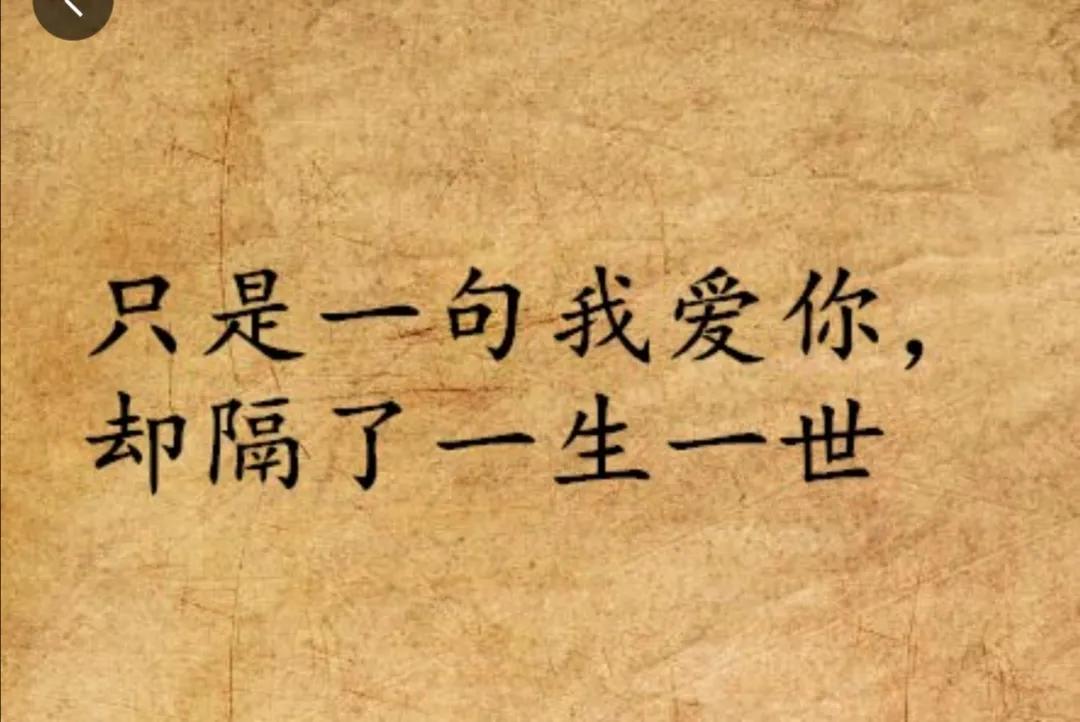 只是一句我爱你，
却隔了一生一世